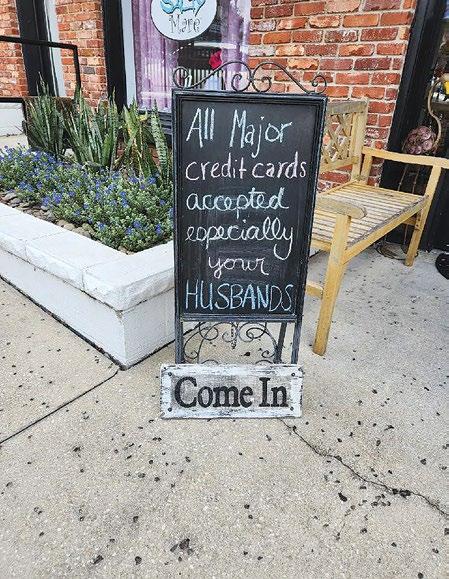 Silly
Mare
All Major
credit cards
accepted
especially
your
HUSBANDS
Come In